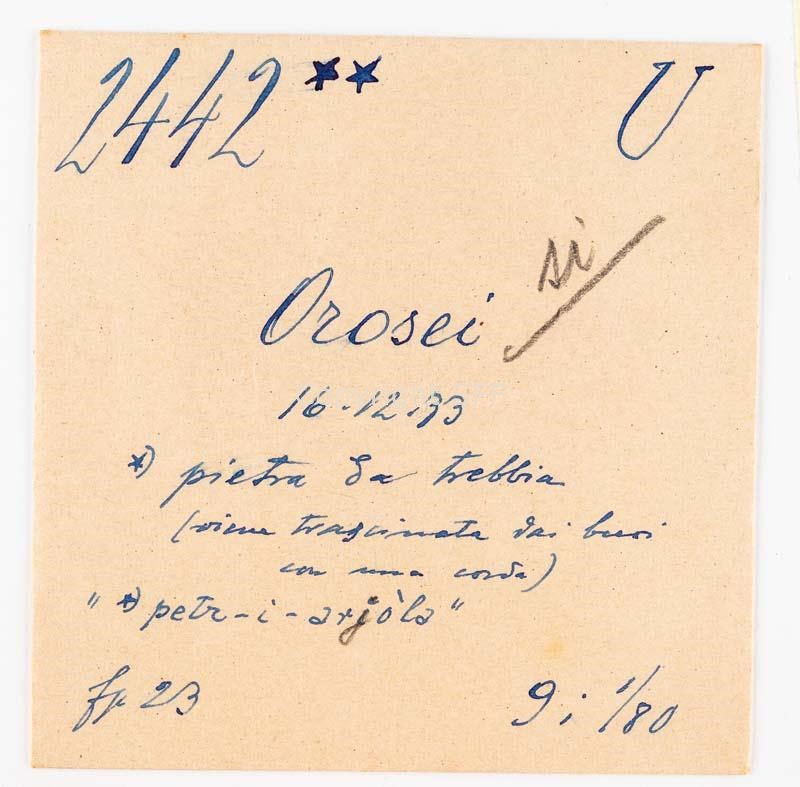 2442 ** U
si
Orosei
16.12.33
*) pietra da trebbia
(viene trascinata dai buoi
con una corda)
" *) petr-i-arjòla"
fp 23 9 i 1/80